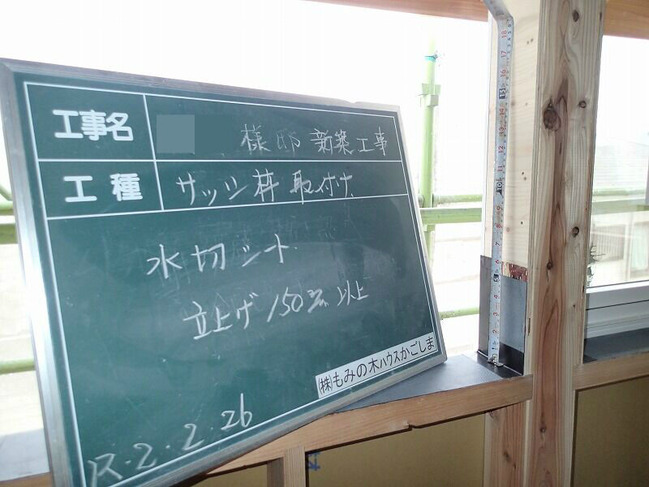 工事名 様邸 新築工事
工種 サッシ枠取付け
水切シート
立上げ150㎜以上
(株)もみの木ハウスかごしま
R.2.2.26